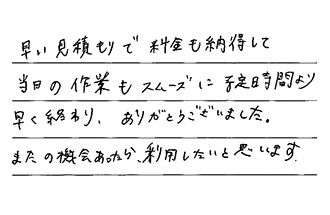 早い見積もりで 料金も納得して
当日の作業もスムーズに予定時間より
早く終わり、ありがとうございました。
またの機会あったら、利用したいと思います。